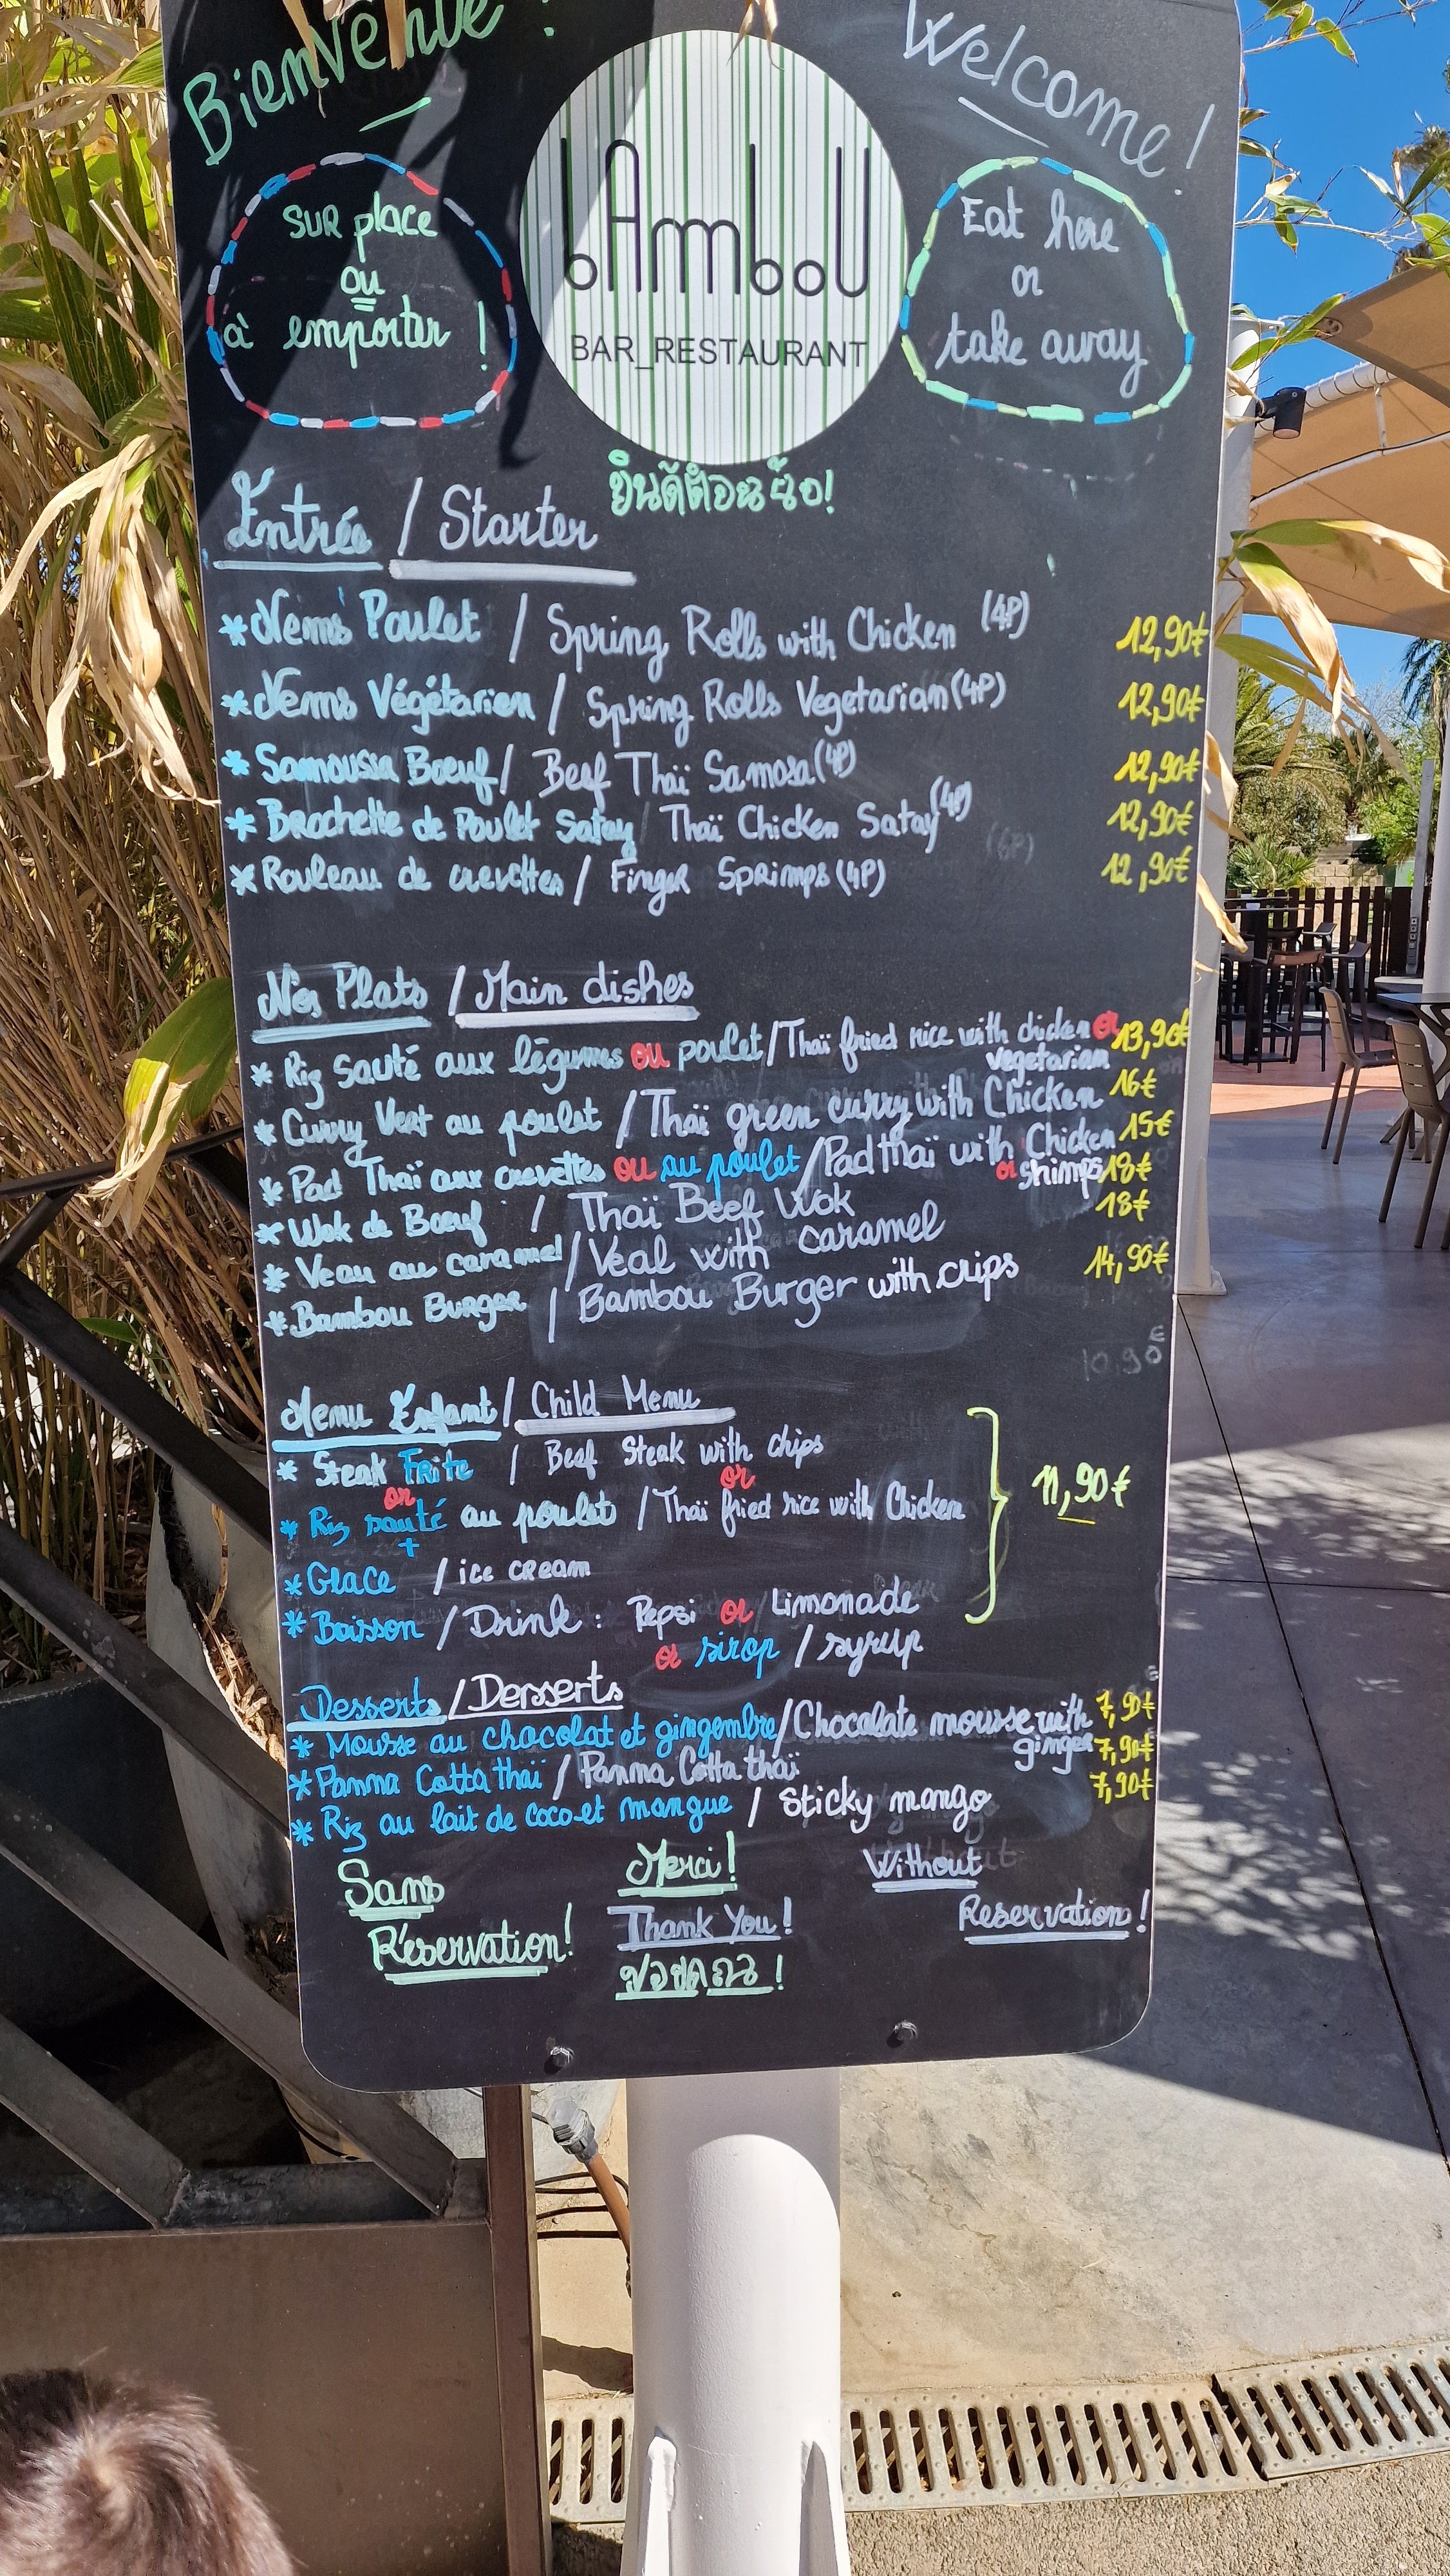 Bienvenue !
Welcome !
sur place
ou
à emporter !
bAmboU
BAR_RESTAURANT
Eat here
or
take away
ยินดีต้อนรับ!
Entrée / Starter
* Nems Poulet / Spring Rolls with Chicken (4P) 12,90€
* Nems Végétarien / Spring Rolls Vegetarian (4P) 12,90€
* Samoussa Boeuf / Beef Thaï Samosa (4P) 12,90€
* Brochette de Poulet Satay / Thaï Chicken Satay (4P) 12,90€
* Rouleau de crevettes / Finger Sprimps (4P) 12,90€
Nos Plats / Main dishes
* Riz sauté aux légumes ou poulet / Thaï fried rice with chicken or 13,90€
vegetarian
* Curry Vert au poulet / Thaï green curry with Chicken 16€
* Pad Thaï aux crevettes ou au poulet / Pad thaï with Chicken 15€
or shimps 18€
* Wok de Boeuf / Thaï Beef Wok 18€
* Veau au caramel / Veal with caramel
* Bambou Burger / Bambou Burger with crips 14,90€
10.90€
Menu Enfant / Child Menu
* Steak Frite / Beef Steak with chips
or or
* Riz sauté au poulet / Thaï fried rice with Chicken 11,90€
+
* Glace / ice cream
* Boisson / Drink : Pepsi or Limonade
or sirop / syrup
Desserts / Desserts
* Mousse au chocolat et gingembre / Chocolate mousse with 7,90€
ginger
* Panna Cotta thaï / Panna Cotta thaï 7,90€
* Riz au lait de coco et mangue / Sticky mango 7,90€
Sans
Réservation!
Merci !
Thank You !
ขอบคุณ !
Without
Reservation !